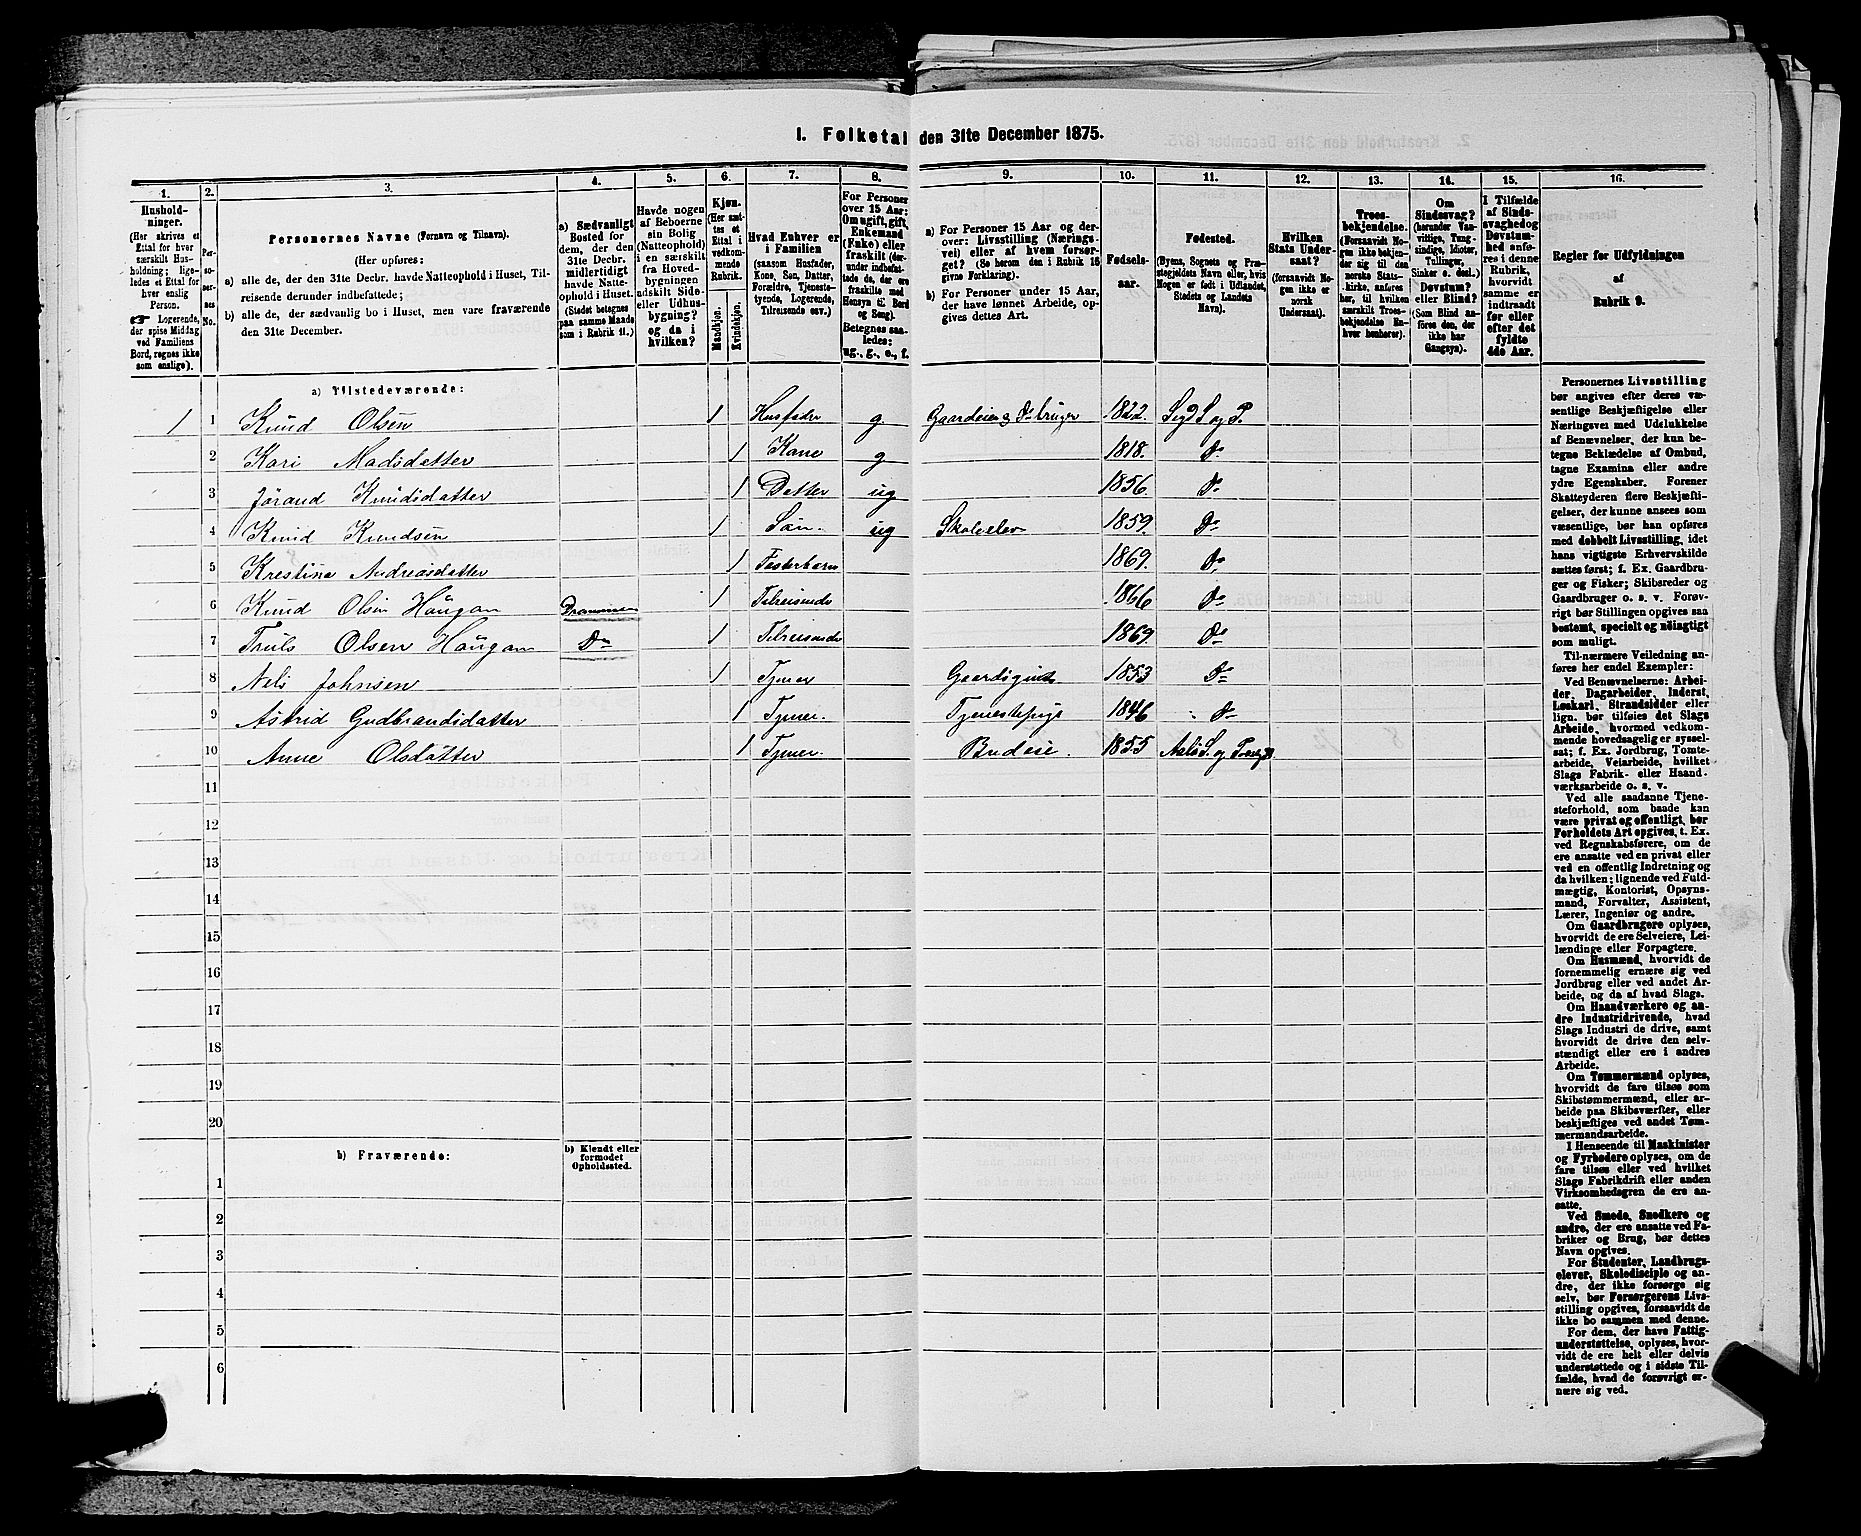 1. Folketal den 31te December 1875.
1. 2. 3. 4. 5. 6. 7. 8. 9. 10. 11. 12. 13. 14. 15. 16.
Hushold-
ninger.
(Her skrives et
Ettal for hver
særskilt Hus-
holdning; lige-
ledes et Ettal for
hver enslig
Person.
☞ Logerende,
der spise Middag
ved Familiens
Bord, regnes ikke
som enslige).
Per-
so-
ner-
nes
No.
Personernes Navne (Fornavn og Tilnavn).
(Her opføres:
a) alle de, der den 31te Decbr. havde Natteophold i Huset, Til-
reisende derunder indbefattede;
b) alle de, der sædvanlig bo i Huset, men vare fraværende
den 31te December.
a) Sædvanligt
Bosted for
dem, der den
31te Decbr.
midlertidigt
havde Natte-
ophold i Huset.
(Stedet betegnes
paa samme Maade
som i Rubrik 11.)
Havde nogen
af Beboerne
sin Bolig
(Natteophold)
i en særskilt
fra Hoved-
bygningen
adskilt Side-
eller Udhus-
bygning?
og da i
hvilken?
Kjøn.
(Her sæt-
tes et
Ettal i
vedkom-
mende
Rubrik.
Mandkjøn.
Kvindekjøn.
Hvad Enhver er
i Familien
(saasom Husfader,
Kone, Søn, Datter,
Forældre, Tjeneste-
tyende, Logerende,
Tilreisende osv.)
For Personer
over 15 Aar:
Om ugift, gift,
Enkemand
(Enke) eller
fraskilt (der-
under indbefat-
tede de, der ere
fraskilte med
Hensyn til Bord
og Seng).
Betegnes saa-
ledes:
ug., g., e., f.
a) For Personer 15 Aar og der-
over: Livsstilling (Nærings-
vei) eller af hvem forsør-
get? (Se herom den i Rubrik 16
givne Forklaring).
b) For Personer under 15 Aar,
der have lønnet Arbeide, op-
gives dettes Art.
Fødsels-
aar.
Fødested.
(Byens, Sognets og Præ-
stegjeldets Navn eller, hvis
Nogen er født i Udlandet,
Stedets og Landets
Navn).
Hvilken
Stats Under-
saat?
(forsaavidt No-
gen ikke er
norsk
Undersaat).
Troes-
bekjendelse.
(Forsaavidt No-
gen ikke bekjen-
der sig til den
norske Stats-
kirke, anføres
her, til hvilken
særskilt Troes-
bekjendelse En-
hver henhører).
Om
Sindssvag?
(herunder Van-
vittige, Tung-
sindige, Idioter,
Tullinger,
Sinker o. desl.)
Døvstum?
eller Blind?
(Som Blind an-
føres den, der
ikke har
Gangsyn).
I Tilfælde
af Sinds-
svaghed og
Døvstum-
hed anfø-
res i denne
Rubrik,
hvorvidt
samme er
indtraadt
før eller
efter det
fyldte
4de Aar.
Regler for Udfyldningen
af
Rubrik 9.
a) Tilstedeværende:
1 1 Knud Olsen 1 Husfader g. Gaardeier & Do bruger 1822. Sigd. S og P.
2 Kari Madsdatter 1 Kone g 1818. Do
3 Jørand Knudsdatter 1 Datter ug 1856. Do
4 Knud Knudsen 1 Søn. ug Skoleelev 1859. Do
5 Krestine Andreasdatter 1 Fosterbarn 1869. Do
6 Knud Olsen Haugan Drammen 1 Tilreisende 1866 Do
7 Truls Olsen Haugan Do 1 Tilreisende 1869. Do
8 Nils Johnsen 1 Tjener Gaardsgut 1853 Do
9 Astrid Gudbrandsdatter 1 Tjener. Tjenestepige 1846 Do
10 Anne Olsdatter 1 Tjener. Budeie. 1855 Aals S. og Præstgj.
11
12
13
14
15
16
17
18
19
20
b) Fraværende: b) Kjendt eller
formodet
Opholdssted.
1
2
3
4
5
6
Personernes Livsstilling
bør angives efter deres væ-
sentlige Beskjæftigelse eller
Næringsvei med Udelukkelse
af Benævnelser, der kun be-
tegne Beklædelse af Ombud,
tagne Examina eller andre
ydre Egenskaber. Forener
Skatteyderen flere Beskjæfti-
gelser, der kunne ansees som
væsentlige, bør han opføres
med dobbelt Livsstilling, idet
hans vigtigste Erhvervskilde
sættes først; f. Ex. Gaardbru-
ger og Fisker; Skibsreder og
Gaardbruger o. s. v. Forøv-
rigt bør Stillingen opgives saa
bestemt, specielt og nøiagtigt
som muligt.
Til nærmere Veiledning an-
føres her endel Exempler:
Ved Benævnelserne: Arbei-
der, Dagarbeider, Inderst,
Løskarl, Strandsidder eller
lign. bør tilføies det Slags
Arbeide, hvormed vedkom-
mende hovedsagelig er syssel-
sat; f. Ex. Jordbrug, Tomte-
arbeide, Veiarbeide, hvilket
Slags Fabrik- eller Haand-
værksarbeide o. s. v.
Ved alle saadanne Tjene-
steforhold, som baade kan
være privat og offentligt, bør
Forholdets Art opgives, t. Ex.
ved Regnskabsførere, om de
ere ansatte ved en privat eller
ved en offentlig Indretning og
da hvilken; lignende ved Fuld-
mægtig, Kontorist, Opsyns-
mand, Forvalter, Assistent,
Lærer, Ingeniør og andre.
Om Gaardbrugere oplyses,
hvorvidt de ere Selveiere, Lei-
lændinge eller Forpagtere.
Om Husmænd, hvorvidt de
fornemmelig ernære sig ved
Jordbrug eller ved andet Ar-
beide, og da af hvad Slags.
Om Haandværkere og an-
dre Industridrivende, hvad
Slags Industri de drive, samt
hvorvidt de drive den selv-
stændigt eller ere i andres
Arbeide.
Om Tømmermænd oplyses,
hvorvidt de fare tilsøs som
Skibstømmermænd, eller ar-
beide paa Skibsværfter, eller
beskjæftiges ved andet Tøm-
mermandsarbeide.
I Henseende til Maskinister
og Fyrbødere oplyses, om de
fare tilsøs eller ved hvilket
Slags Fabrikdrift eller anden
Virksomhedsgren de ere an-
satte.
Ved Smede, Snedkere og
andre, der ere ansatte ved Fa-
briker og Brug, bør dettes
Navn opgives.
For Studenter, Landbrugs-
elever, Skoledisciple og an-
dre, der ikke forsørge sig
selv, bør Forsørgerens Livs-
stilling opgives, forsaavidt de
ikke bo sammen med denne.
For dem, der have Fattig-
understøttelse, oplyses, hvor-
vidt de ere helt eller delvis
understøttede og i sidste Til-
fælde, hvad de forøvrigt er-
nære sig ved.